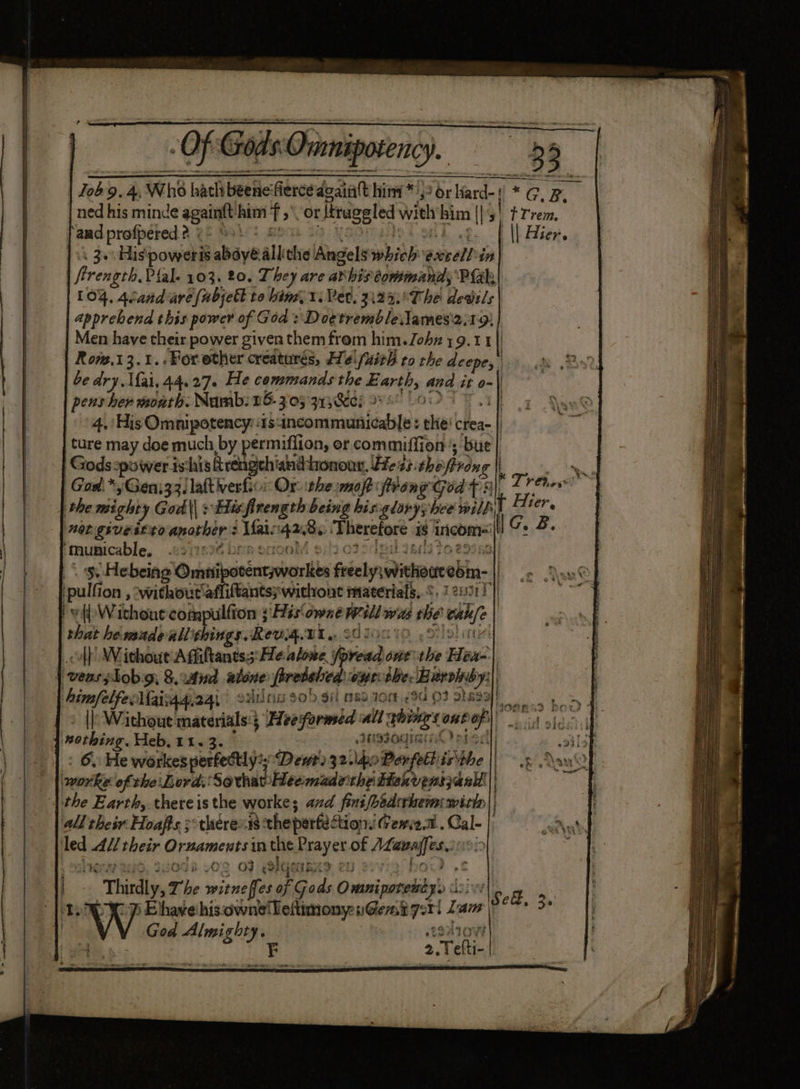 Of Gods Omnipotency. 33
Job 9. 4. Who hath beene fierce against him *, or hard-
ned his minde against him †, or struggled with him || s
and prospered ?
3. His power is above all the Angels which excell in
strength. Psal. 103. 20. They are at his command, Psal.
104. 4. and are subject to him, 1. Pet. 3. 22. The devils
apprehend this power of God : Doe tremble. James 2. 19.
Men have their power given them from him. John 19. 11
Rom. 13. 1. For other creatures, He saith to the deepe,
be dry. Isai. 44. 27. He commands the Earth, and it o-
pens her mouth. Numb. 16. 30, 31, &c.
4. His Omnipotency is incommunicable : the crea-
ture may doe much by permission, or commission ; but
Gods power is his strength and honour, He is the strong
God *, Gen. 33. last vers. Or the most strong God †
the mighty God || : His strength being his glory, hee will
not give it to another : Isai. 42. 8. Therefore is incom-
municable.
5. He being Omnipotent, workes freely, without com-
pulsion, without assistants, without materials.
|| Without compulsion ; His owne Will was the cause
that he made all things. Rev. 4. 11.
|| Without Assistants ; He alone spread out the Hea-
vens, Iob 9. 8. And alone stretched out the Earth by
himselfe. Isai. 44. 24.
|| Without materials ; Hee formed all things out of
nothing. Heb. 11. 3.
6. He workes perfectly ; Deut. 32. 4. Perfect is the
worke of the Lord. So that Hee made the Heavens, and
the Earth, there is the worke; and finished them with
all their Hoasts ; there is the perfection. Gen. 2. 1. Cal-
led All their Ornaments in the Prayer of Manasses.
Thirdly, The witnesses of Gods Omnipotency.
1. WEE have his owne Testimony: Gen. 17. 1. I am
God Almighty.
F 2. Testi-
* G. B.
† Trem.
|| Hier.
* Trem.
† Hier.
|| G. B.
Sect. 3.